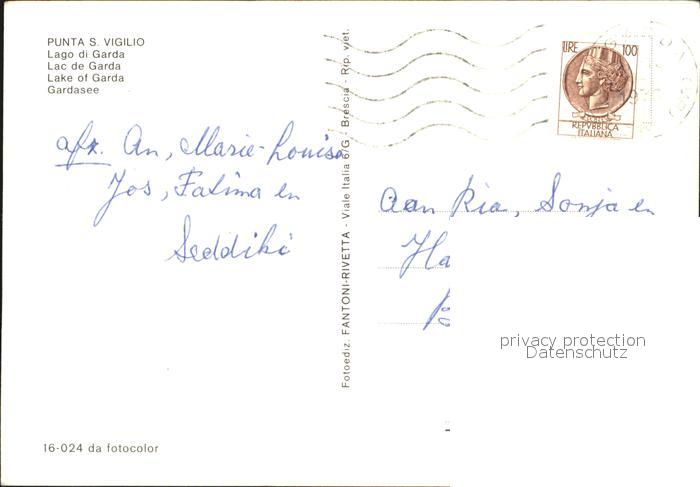 PUNTA S. VIGILIO
Lago di Garda
Lac de Garda
Lake of Garda
Gardasee
afz. An, Marie-Louise
Jos, Fatima en
Seddiki
16-024 da fotocolor
Fotoediz. FANTONI-RIVETTA - Viale Italia 6/G - Brescia - Rip. viet.
LIRE 100
REPVBBLICA
ITALIANA
Aan Ria, Sonja en
Ha
privacy protection
Datenschutz